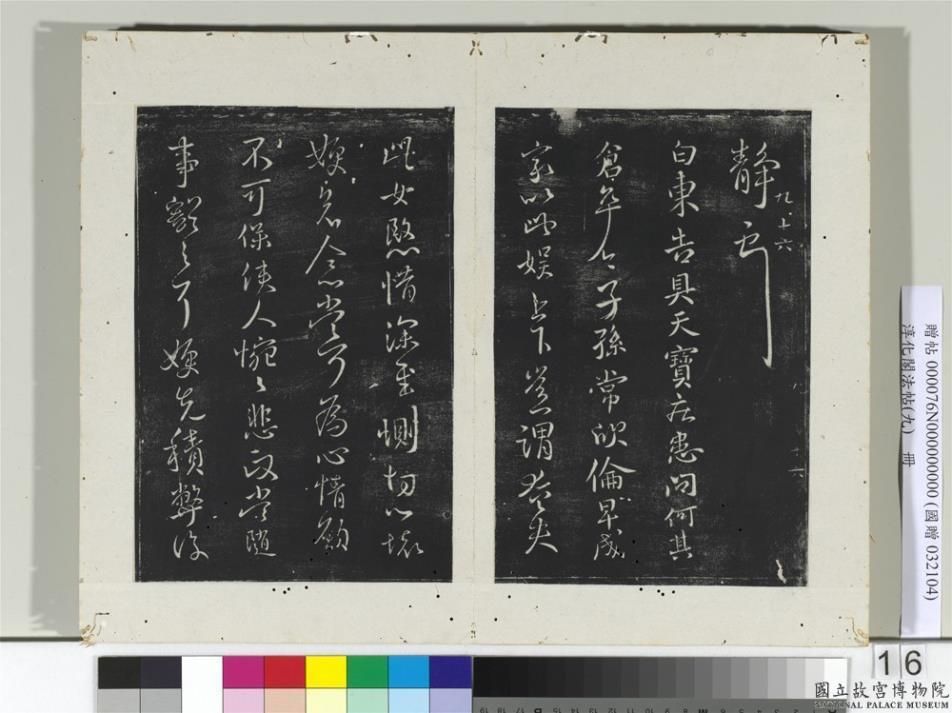 静
九、十六
白東告具天寶疾患問何其
倉卒令子孫常欣倫早成
家以此娛上下豈謂奄失
此女愍惜深至惻切心懷
嫂哀念當可為心情願
不可保使人惋惋悲政當隨
事豁之耳嫂先積弊復
十六
贈帖 000076N000000000 (國贈 032104)
淳化閣法帖(九) 冊
16
國立故宮博物院
NATIONAL PALACE MUSEUM